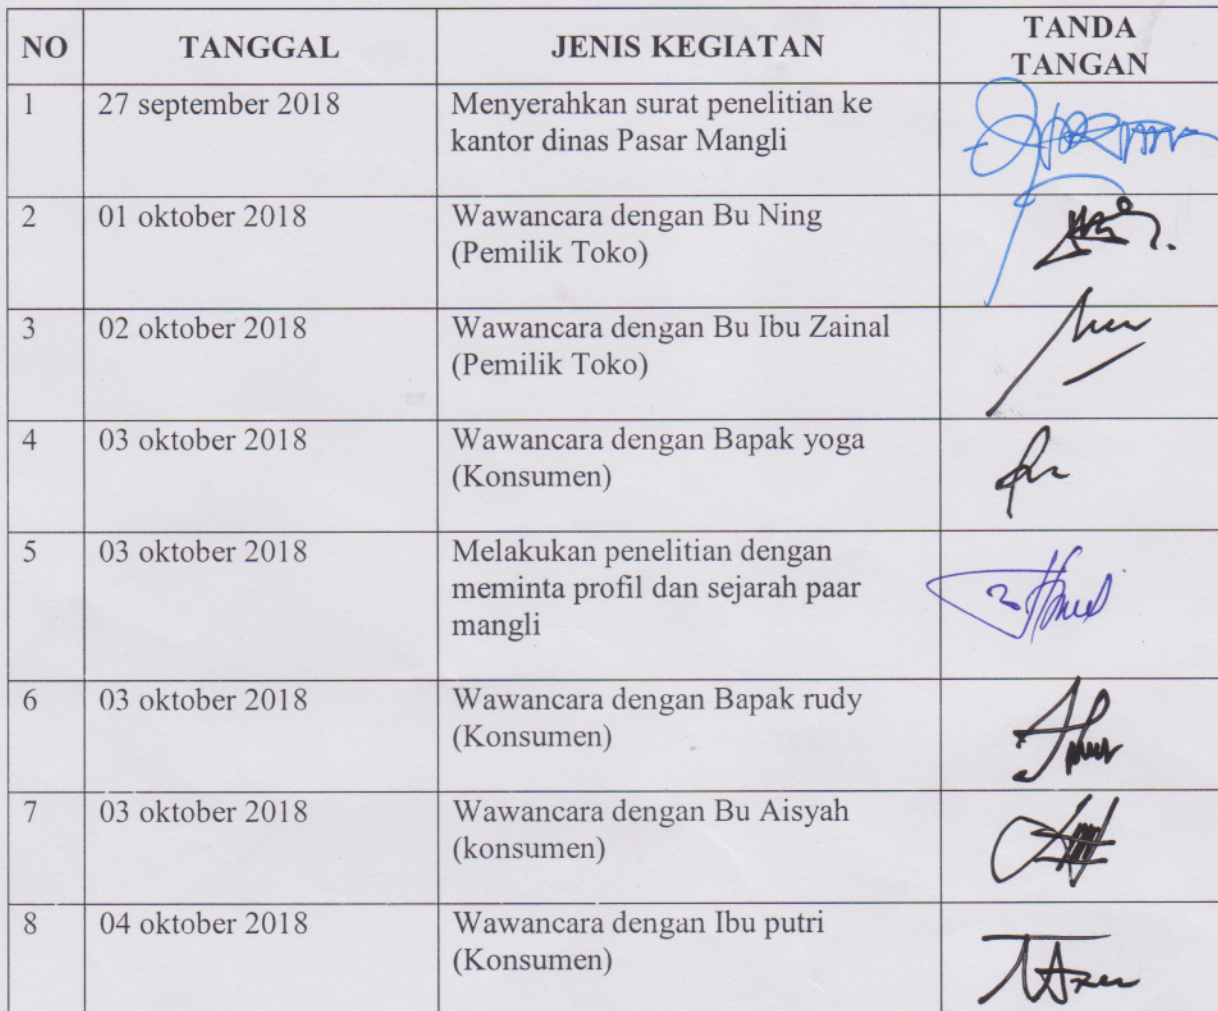 NO TANGGAL JENIS KEGIATAN TANDA
TANGAN
1 27 september 2018 Menyerahkan surat penelitian ke
kantor dinas Pasar Mangli
2 01 oktober 2018 Wawancara dengan Bu Ning
(Pemilik Toko)
3 02 oktober 2018 Wawancara dengan Bu Ibu Zainal
(Pemilik Toko)
4 03 oktober 2018 Wawancara dengan Bapak yoga
(Konsumen)
5 03 oktober 2018 Melakukan penelitian dengan
meminta profil dan sejarah paar
mangli
6 03 oktober 2018 Wawancara dengan Bapak rudy
(Konsumen)
7 03 oktober 2018 Wawancara dengan Bu Aisyah
(konsumen)
8 04 oktober 2018 Wawancara dengan Ibu putri
(Konsumen)